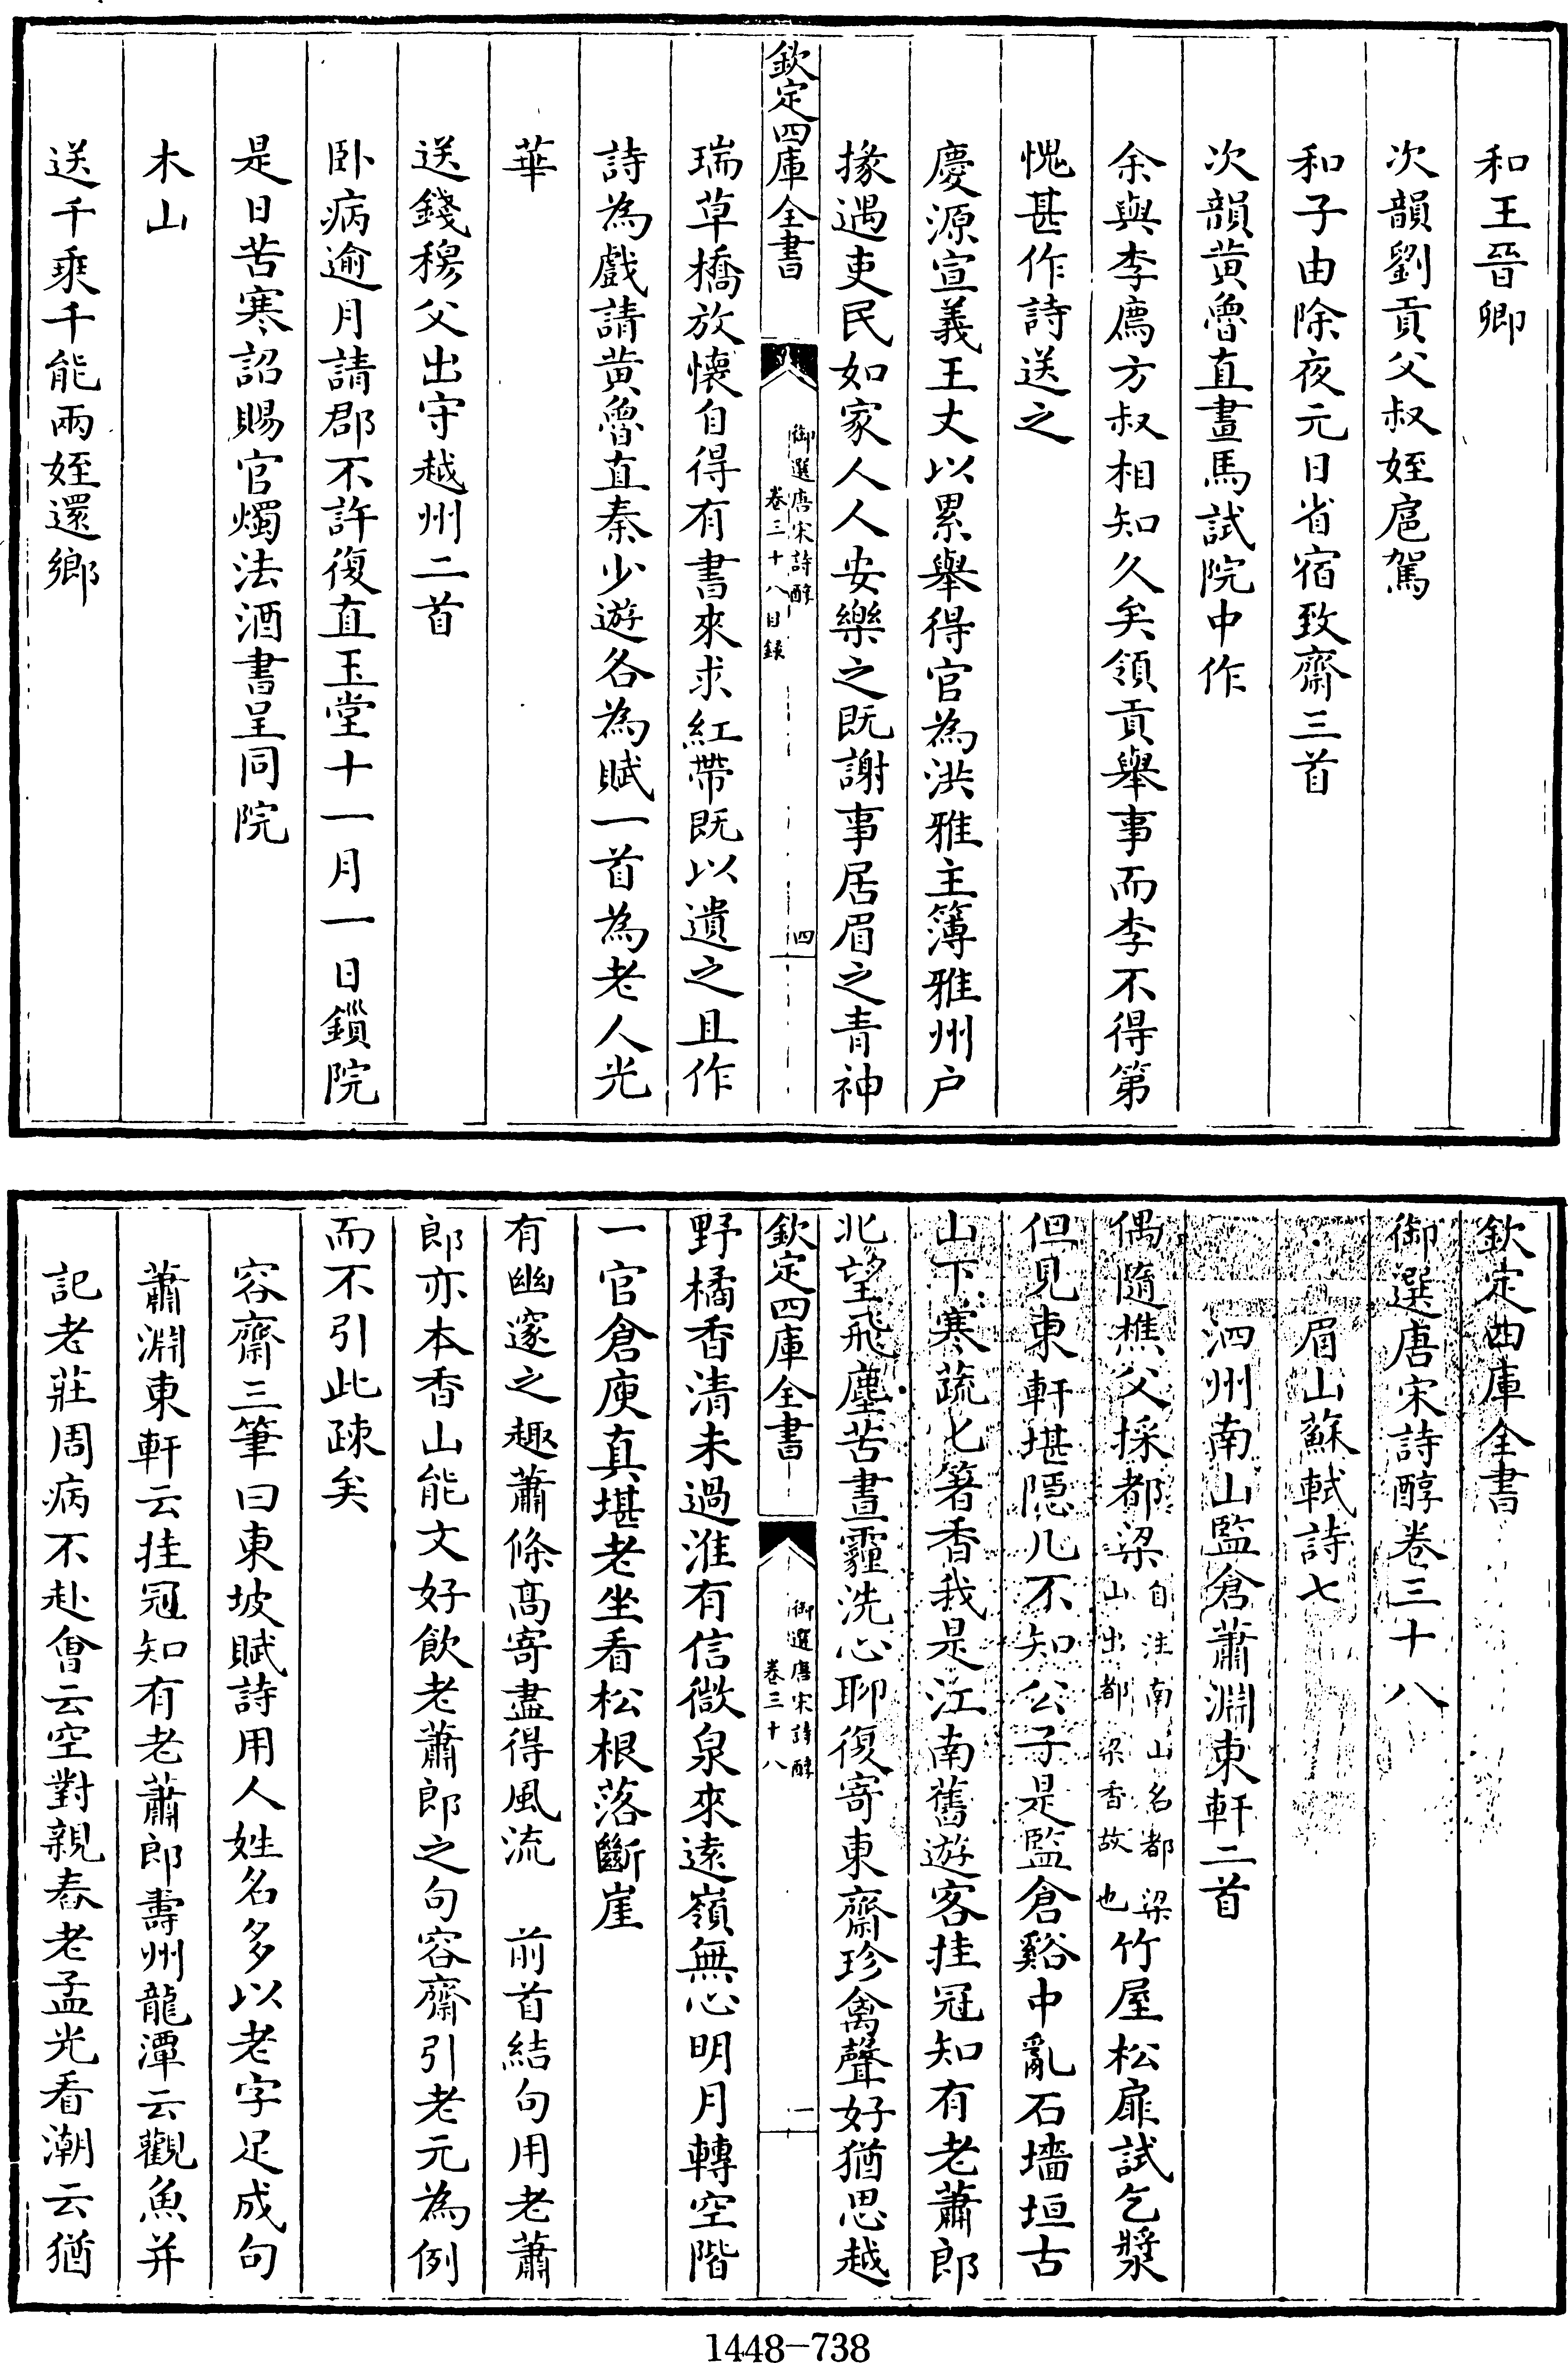 和王晉卿
次韻劉貢父叔姪扈駕
和子由除夜元日省宿致齋三首
次韻黄魯直畫馬試院中作
余與李廌方叔相知久矣領貢舉事而李不得第
愧甚作詩送之
慶源宣義王丈以累舉得官為洪雅主簿雅州户
掾遇吏民如家人人安樂之既謝事居眉之青神
欽定四庫全書
御選唐宋詩醇
卷三十八目録
四
瑞草橋放懷自得有書來求紅帶既以遺之且作
詩為戲請黄魯直秦少遊各為賦一首為老人光
華
送錢穆父出守越州二首
卧病逾月請郡不許復直玉堂十一月一日鎖院
是日苦寒詔賜官燭法酒書呈同院
木山
送千乘千能兩姪還鄉
欽定四庫全書
御選唐宋詩醇卷三十八
眉山蘇軾詩七
泗州南山監倉蕭淵東軒二首
偶隨樵父採都梁自注南山名都梁山出都梁香故也竹屋松扉試乞漿
但見東軒堪隱几不知公子是監倉谿中亂石墻垣古
山下寒蔬匕箸香我是江南舊遊客挂冠知有老蕭郎
北望飛塵苦晝霾洗心聊復寄東齋珍禽聲好猶思越
欽定四庫全書
御選唐宋詩醇
卷三十八
一
野橘香清未過淮有信微泉來遠嶺無心明月轉空階
一官倉庾真堪老坐看松根落斷崖
有幽邃之趣蕭條高寄盡得風流　前首結句用老蕭
郎亦本香山能文好飲老蕭郎之句容齋引老元為例
而不引此疎矣
容齋三筆曰東坡賦詩用人姓名多以老字足成句
蕭淵東軒云挂冠知有老蕭郎壽州龍潭云觀魚并
記老莊周病不赴會云空對親舂老孟光看潮云猶
1448-738